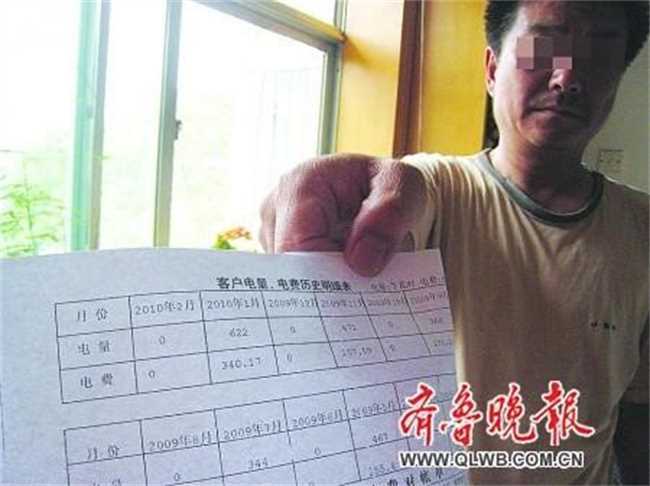 客户电量、电费历史明细表
月份 2010年2月 2010年1月 2009年12月 2009年11月
电量 0 622 0 472
电费 0 340.17 0
月份 2009年8月 2009年7月 2009年6月 2009年5月
0 344 0 467
齐鲁晚报
WWW.QLWB.COM.CN